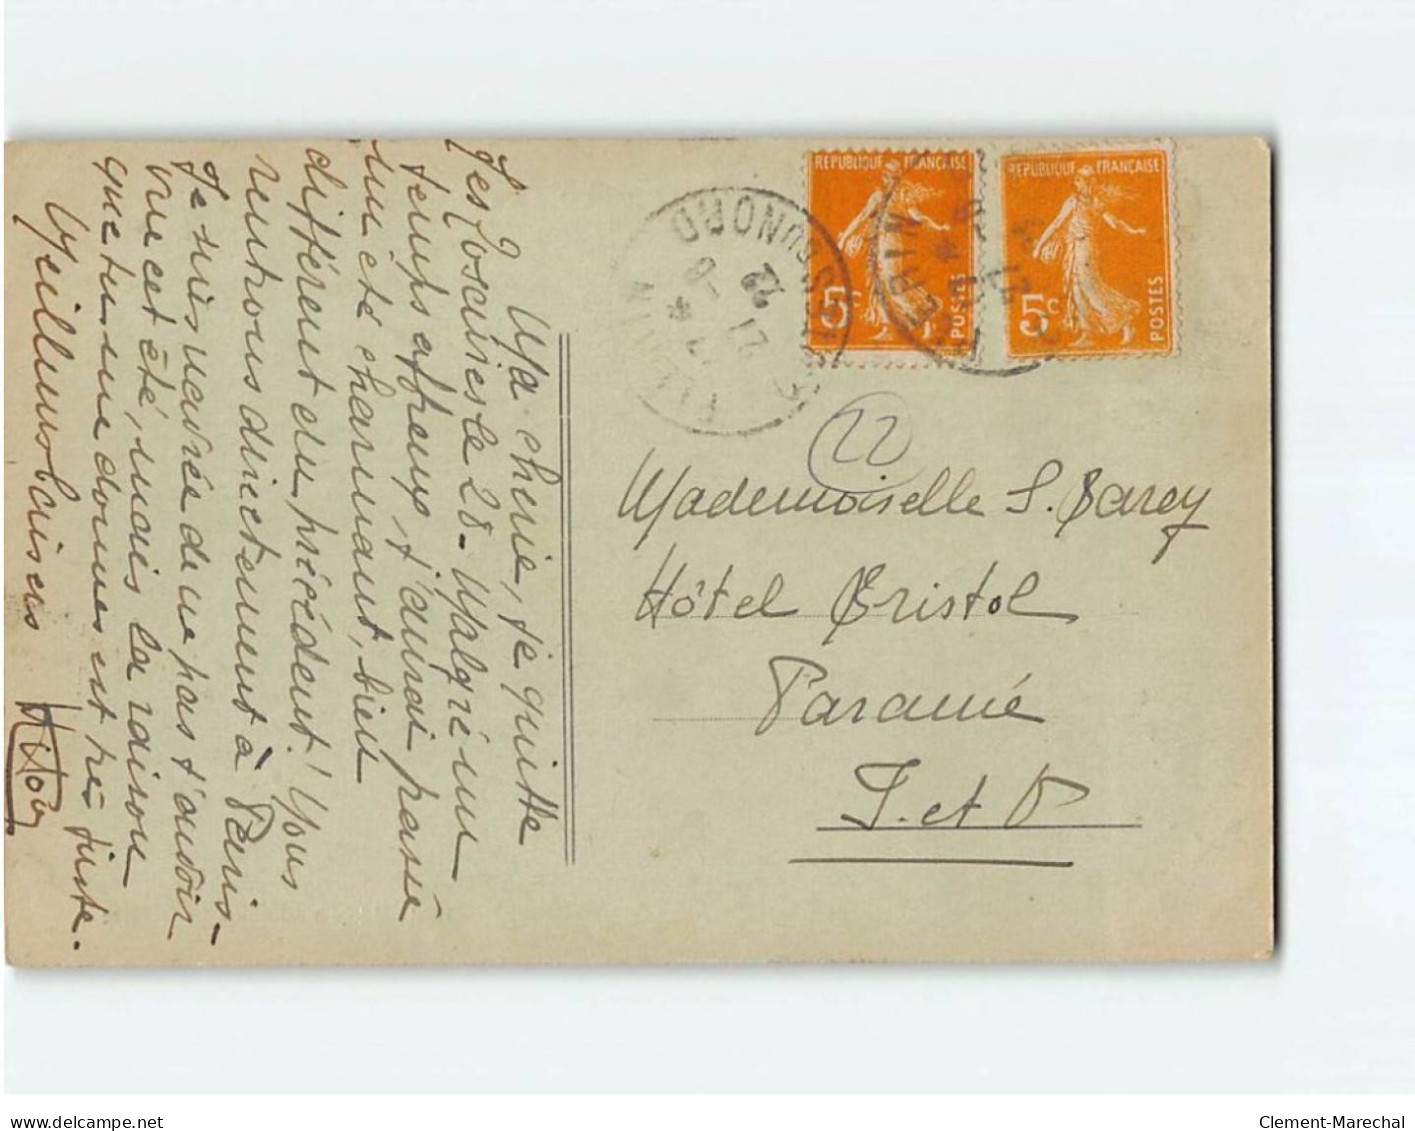 Ma chérie, je quitte
les Roscaires le 28 - Malgré un
temps affreux, j'aurai passé
un été charmant, bien
différent du précédent! Nous
rentrons directement à Paris -
Je suis navrée de ne pas t'avoir
vue cet été, mais la raison
que tu me donnes est très juste.
Meilleurs baisers
REPUBLIQUE FRANÇAISE
5c
POSTES
REPUBLIQUE FRANÇAISE
5c
POSTES
NORD
21 -8
22
22
Mademoiselle S. Barey
Hôtel Bristol
Paramé
I. et V
delcampe.net
Clement-Marechal